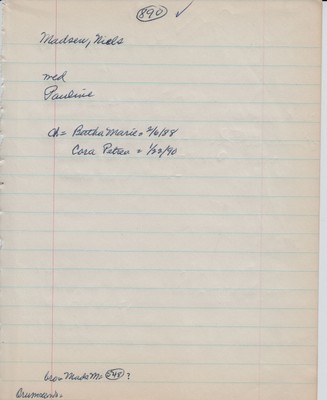 890 ✓
Madsen, Niels
md
Pauline
ch = Bertha Marie = 2/6/88
Cora Petrea = 1/22/90
bro = Mads M. 248 ?